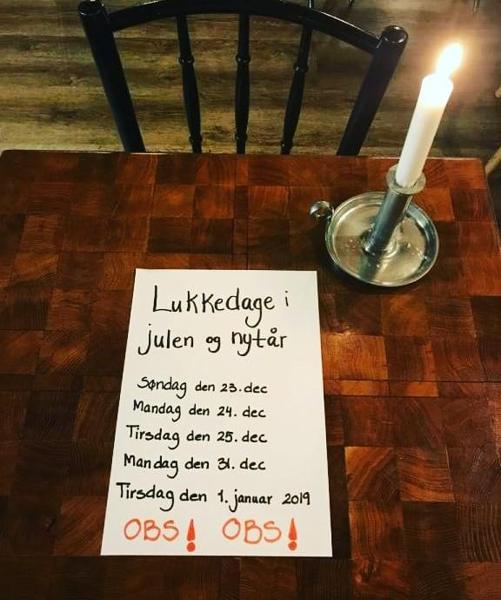 Lukkedage i
julen og nytår
Søndag den 23. dec
Mandag den 24. dec
Tirsdag den 25. dec
Mandag den 31. dec
Tirsdag den 1. januar 2019
OBS! OBS!